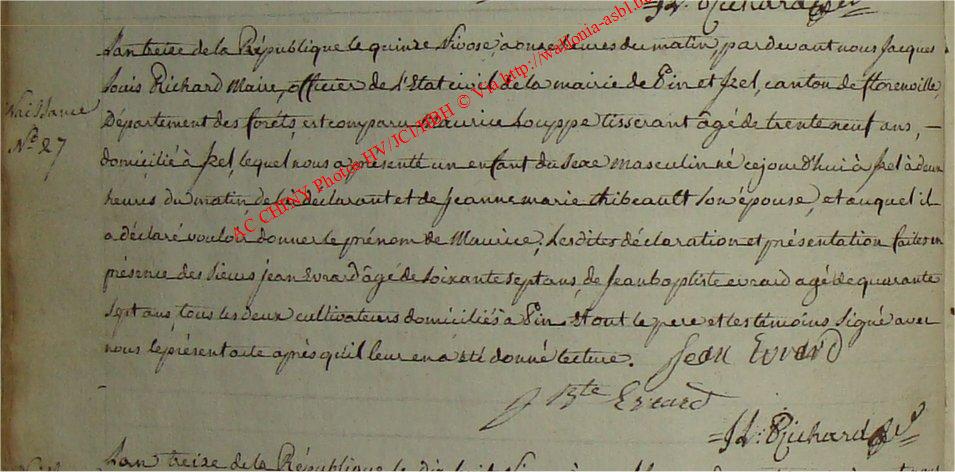 JL. Richard
L'an treize de la République le quinze Nivose à onze heures du matin, par devant nous Jacques
Louis Richard Maire, officier de l'Etat civil de la mairie de Pin et Izel, canton de florenville,
Naissance
N.o 27
Département des forêts, est comparu Maurice Louppe tisserant âgé de trente neuf ans, —
domicilié à Izel, lequel nous a présenté un enfant du sexe masculin né cejourd'hui à Izel à deux
heures du matin, de lui déclarant et de Jeanne marie thibeault son épouse, et auquel il
a déclaré vouloir donner le prénom de Maurice; Lesdites déclaration et présentation faites en
présence des sieurs jean Evrard âgé de soixante sept ans, de Jean baptiste evrard agé de quarante
sept ans, tous les deux cultivateurs domiciliés à Pin. et ont le pere et les témoins signé avec
nous le présent acte après qu'il leur en a été donné lecture.
Jean Evrard
J Bte Evrard
JL: Richard
L'an treize de la République le
AC CHINY Photos HV/JCL/HBH © Via http://wallonia-asbl.be